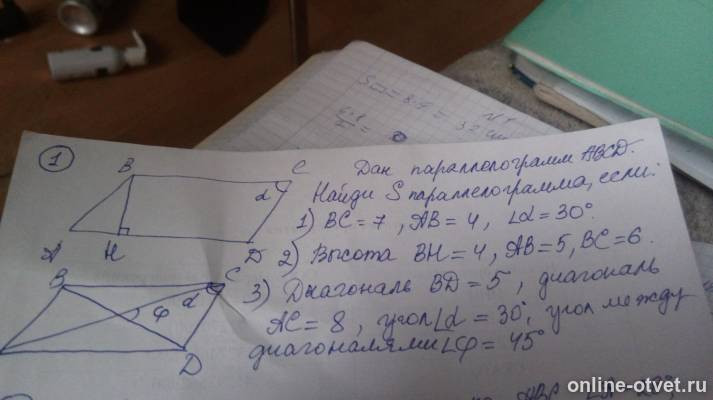 S▱ = 8·4 = 32
N1
①
Дан параллелограмм ABCD.
Найди S параллелограмма, если:
1) BC = 7, AB = 4, ∠α = 30°.
2) Высота BH = 4, AB = 5, BC = 6.
3) Диагональ BD = 5, диагональ
AC = 8, угол ∠α = 30°, угол между
диагоналями ∠φ = 45°
B
C
α
A
H
D
B
C
α
φ
D
online-otvet.ru